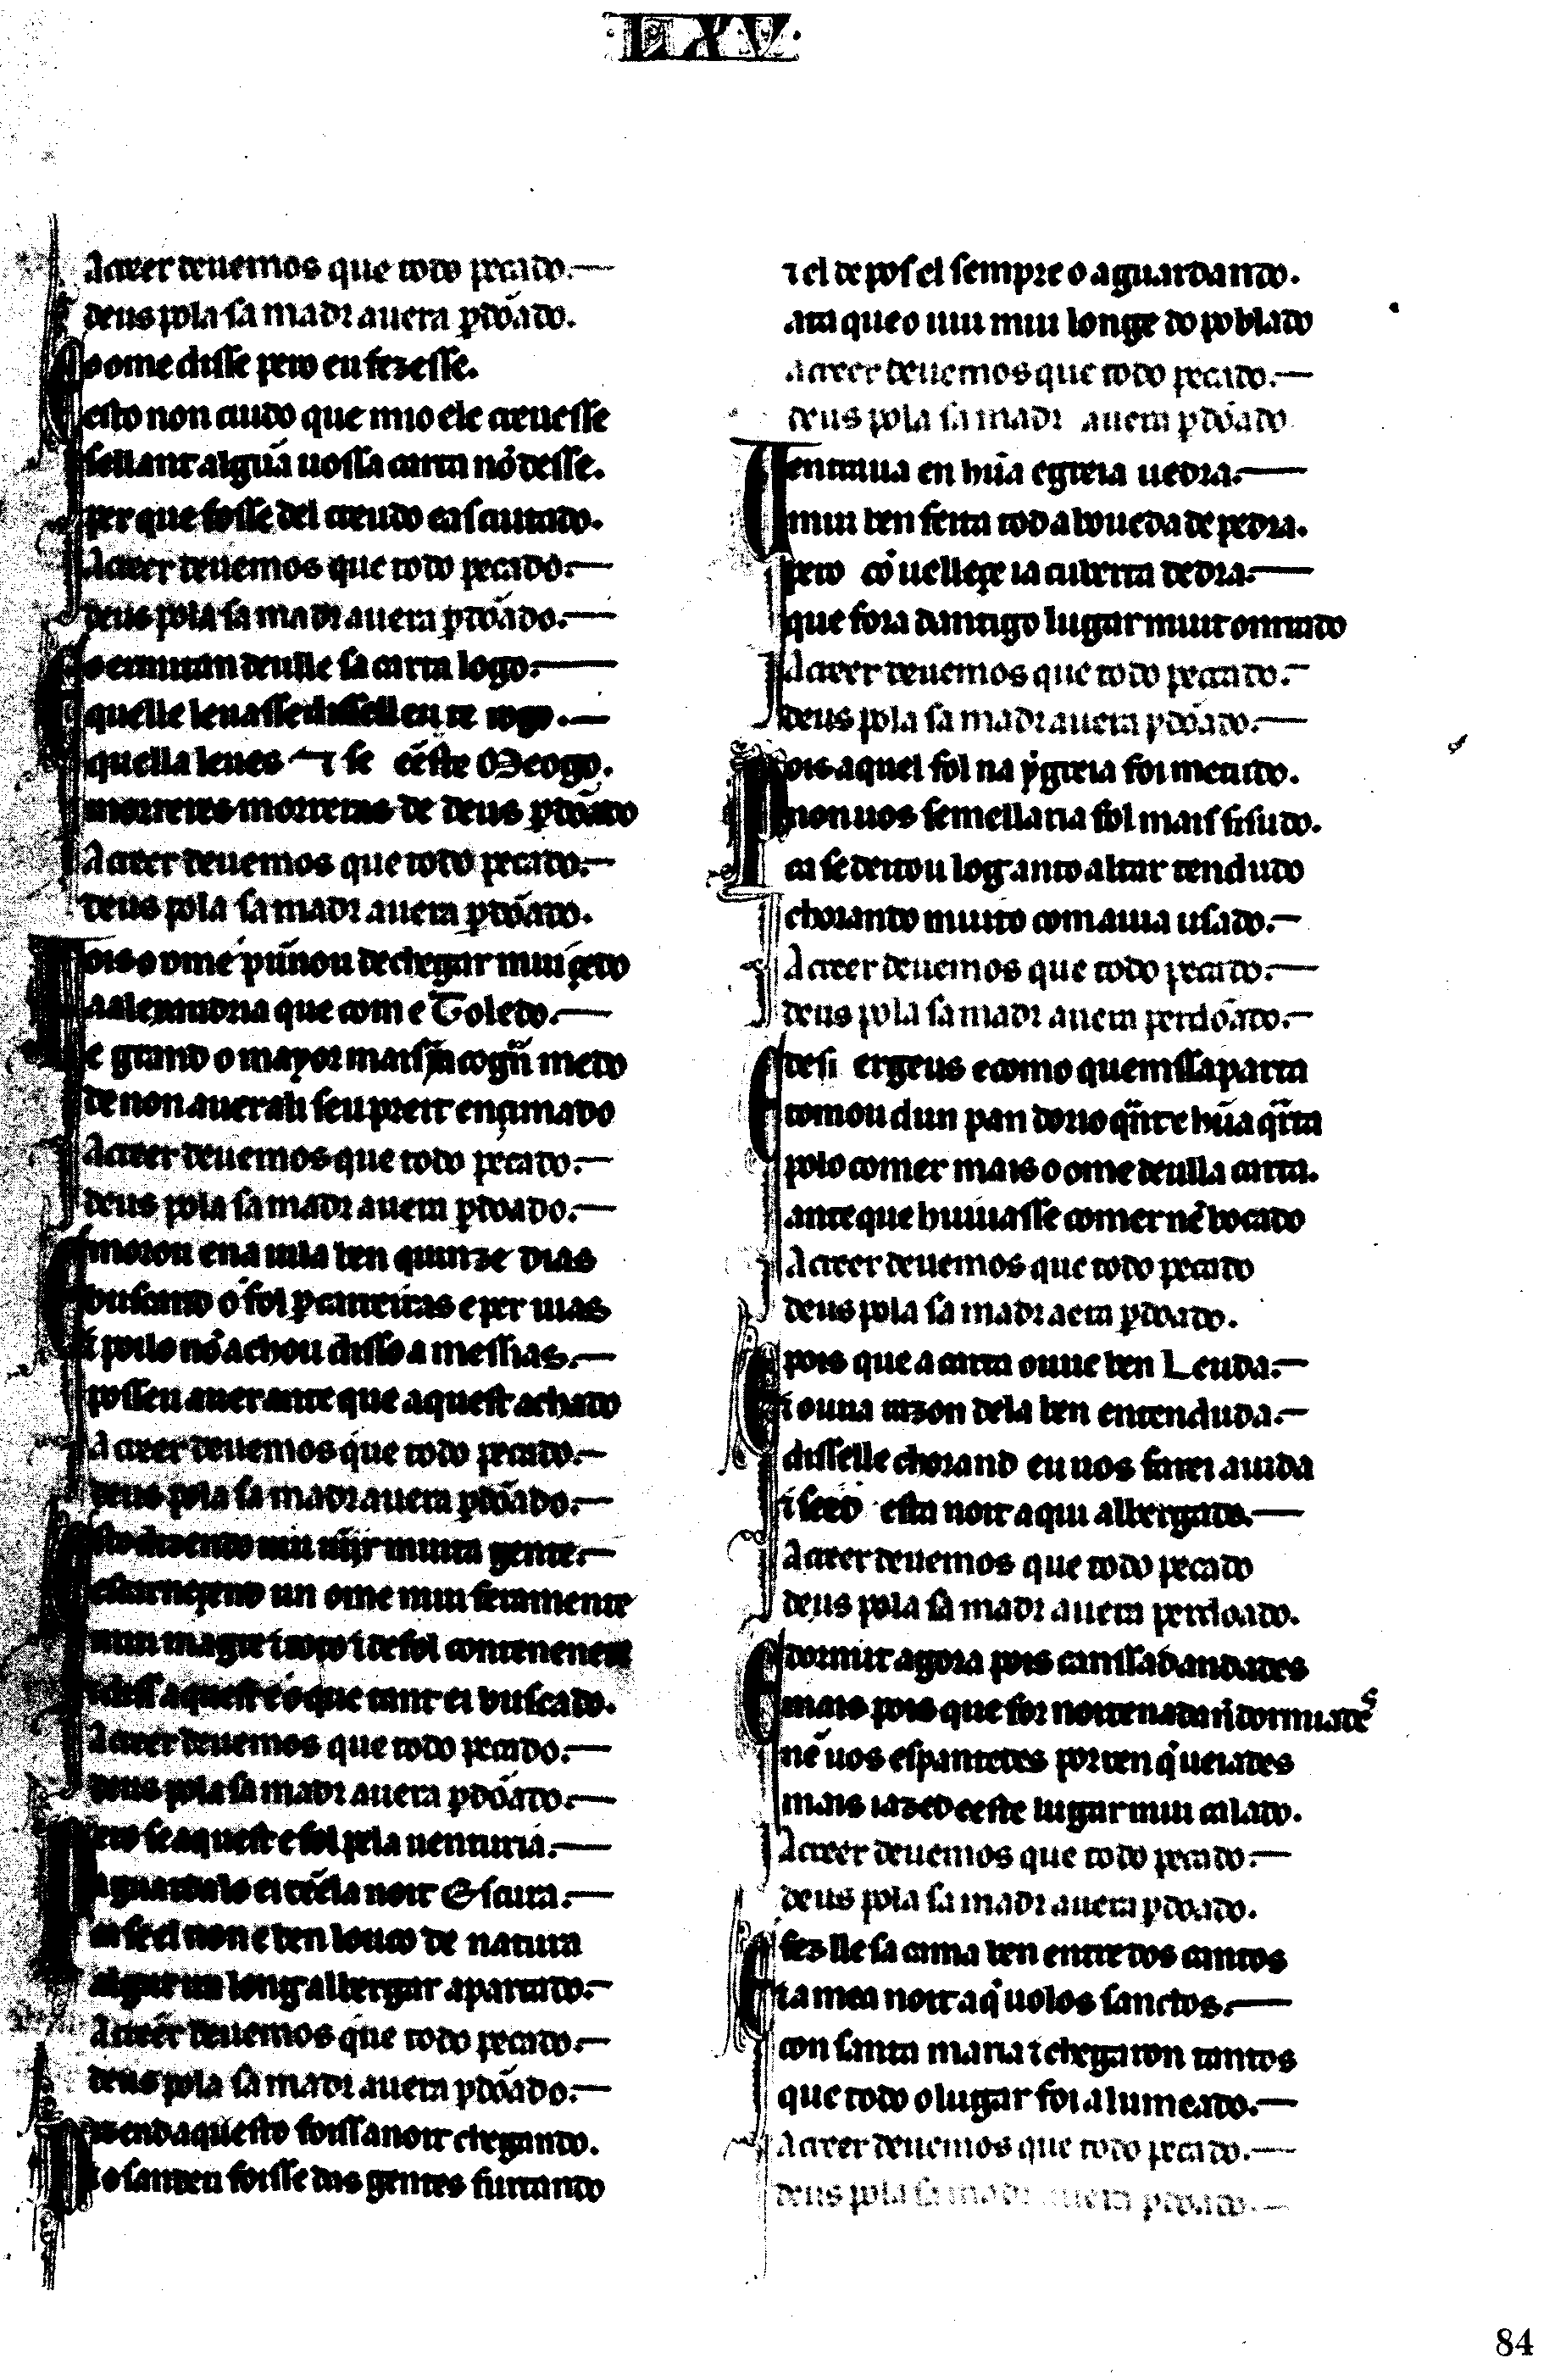 LXV
A creer deuemos que todo pecado.
deus pola sa madr auera ꝑdõado.
o ome disse pero eu fezesse.
esto non cuido que mio ele creuesse
sellant algũa uossa carta nõ desse.
per que fosse del creudo e ascuitado.
A creer deuemos que todo pecado.
deus pola sa madr auera ꝑdõado.
o ermitan deulle sa carta logo.
quelle leuasse dissell eu te rogo.
quella leues ⁊ se cẽste Meogo.
morreres morreras de deus ꝑdõado
A creer deuemos que todo pecado.
deus pola sa madr auera ꝑdõado.
Pois o ome punnou de chegar mui çedo
a alexandria que com e Toledo.
e grand o mayor mais
de non auer ali seu preit ençimado
A creer deuemos que todo pecado.
deus pola sa madr auera ꝑdoado.
E morou ena uila ben quinze dias
buscand o fol ꝑ carreiras e per uias
⁊ poilo nõ achou disso a messias.
posseu auer ante que aquest achado
A creer deuemos que todo pecado.
deus pola sa madr auera ꝑdõado.
Esto dizendo uiu uĩjr muita gente.
escarneçend un ome mui feramente
mui magr ⁊ roto ⁊ de fol contenente
⁊ diss aquest é o que tant ei buscado.
A creer deuemos que todo pecado.
deus pola sa madr auera ꝑdõado.
Pero se aquest e fol pela uentuira.
aguardalo ei tẽena noit Escura.
ca se el non e ben louco de natura
algur ua long albergar apartado.
A creer deuemos que todo pecado.
deus pola sa madr auera ꝑdõado.
Dizend aquesto foissa noit chegando.
o sandeu foisse das gentes furtando
⁊ el depos el sempre o aguardando.
ata que o uiu mui longe do poblado
A creer deuemos que todo pecado.
deus pola sa madr auera ꝑdõado
entraua en hũa egreia uedra.
mui ben feita toda boueda de pedra.
pero cõ uelleçe ia cuberta dedra.
que fora dantigo lugar muit onrrado
A creer deuemos que todo peccado.
deus pola sa madr auera ꝑdõado.
Pois aquel fol na ygreia foi metudo.
non uos semellaria fol mais sisudo.
ca se deitou log anto altar tendudo
chorando muito com auia usado.
A creer deuemos que todo pecado.
deus pola sa madr auera perdõado.
E desi ergeus e como quemssaparta
tomou dun pan dorio q̃rt e hũa q̃rta
polo comer mais o ome deulla carta.
ante que huuiasse comer nẽ bocado
A creer deuemos que todo pecado
deus pola sa madr aera ꝑdoado.
E pois que a carta ouue ben Leuda.
⁊ ouua razon dela ben entenduda.
disselle chorand eu uos farei aiuda
⁊ seed esta noit aqui albergado.
A creer deuemos que todo pecado
deus pola sa madr auera perdoado.
E dormir agora pois canssad andades
mais pois que for noite nada nõ dormiades
nẽ uos espantedes por ren q̃ ueiades
mais iazed eeste lugar mui calado.
A creer deuemos que todo pecado.
deus pola sa madr auera ꝑdoado.
E fez lle sa cama ben entre dos cantos
⁊ a mea noit aq̃uolos sanctos.
con santa maria ⁊ chegaron tantos
que todo o lugar foi alumeado.
A creer deuemos que todo pecado.
deus pola sa madr auera ꝑdoado.
84